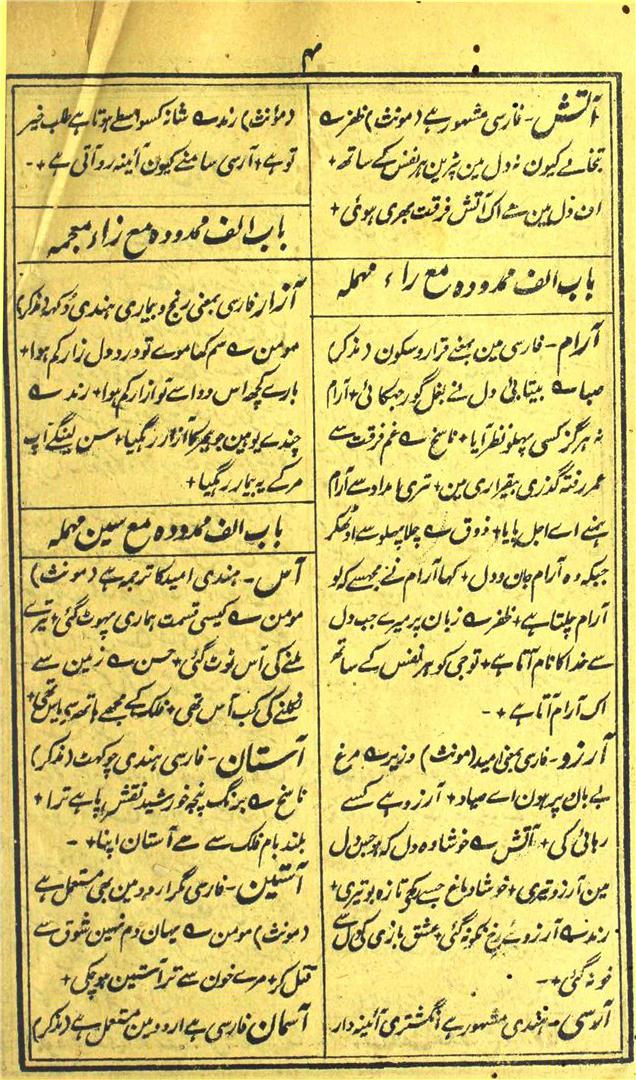 ۴
آتش - فارسی مشہور ہے (مونث) ظفر ؎
تجانے کیون نہ دل مین شررین ہر نفس کے ساتھ +
ان دل مین ہے اک آتش فرقت بھری ہوئی +
باب الف ممدودہ مع راء مہملہ
آرام - فارسی مین بمعنے قرار و سکون (مذکر)
صبا ؎ بیتابئ دل نے بغل گور جھکائی + آرام
نہ ہرگز کسی پہلو نظر آیا + ناسخ ؎ غم فرقت سے
عمر رفتہ گذری بیقراری مین + تری امداد سے آرام
ہمنے اے اجل پایا + ذوق ؎ چلا پہلو سے اوٹھکر
جبکہ وہ آرام جان و دل + کہا آرام نے مجھسے کہ لو
آرام چلتا ہے + ظفر ؎ زبان پر میرے جب دل
سے خدا کا نام آتا ہے + تو جی کو ہر نفس کے ساتھ
اک آرام آتا ہے + -
آرزو - فارسی بمعنی امید (مونث) وزیر ؎ مرغ
بے بال و پر ہون اے صیاد + آرزو ہے کسے
رہائی کی + آتش ؎ خوشا وہ دل کہ ہو جس دل
مین آرزو تیری + خوشا دماغ جسے تازہ رکھے بو تیری +
رند ؎ آرزوئے رخ نکو نہ گئی + عشق بازی کی دل سے
خو نہ گئی + -
آرسی - ہندی مشہور ہے انگشتری آئینہ دار
(مونث) رند ؎ شانہ کسواسطے ہوتا ہے طلب خیر
تو ہے + آرسی سامنے کیون آئینہ رو آتی ہے + -
باب الف ممدودہ مع زاء معجمہ
آزار فارسی بمعنی رنج و بیماری ہندی دکھ (مذکر)
مومن ؎ سم کھا موے تو درد دل زار کم ہوا +
بارے کچھ اس دوا سے تو آزار کم ہوا + رند ؎
چندے یوہین جو ہجر کا آزار رہگیا + سن لینگے آپ
مر کے یہ بیمار رہگیا +
باب الف ممدودہ مع سین مہملہ
آس - ہندی امید کا ترجمہ ہے (مونث)
مومن ؎ کیسی قسمت ہماری پھوٹ گئی + تیرے
ملنے کی آس ٹوٹ گئی + حسن ؎ زمین سے
نکلنے کی کب آس تھی + فلک کے مجھے ہاتھ سے یاس تھی +
آستان - فارسی ہندی چوکھٹ (مذکر)
ناسخ ؎ برنگ پنجہ خورشید نقش پا ہے ترا +
بلند بام فلک سے ہے آستان اپنا + -
آستین - فارسی مگر اردو مین بھی مستعمل ہے
(مونث) مومن ؎ یہان دم نہین شوق سے
قتل کر + مرے خون سے تر آستین ہو چکی +
آسمان فارسی ہے اردو مین مستعمل ہے (مذکر)